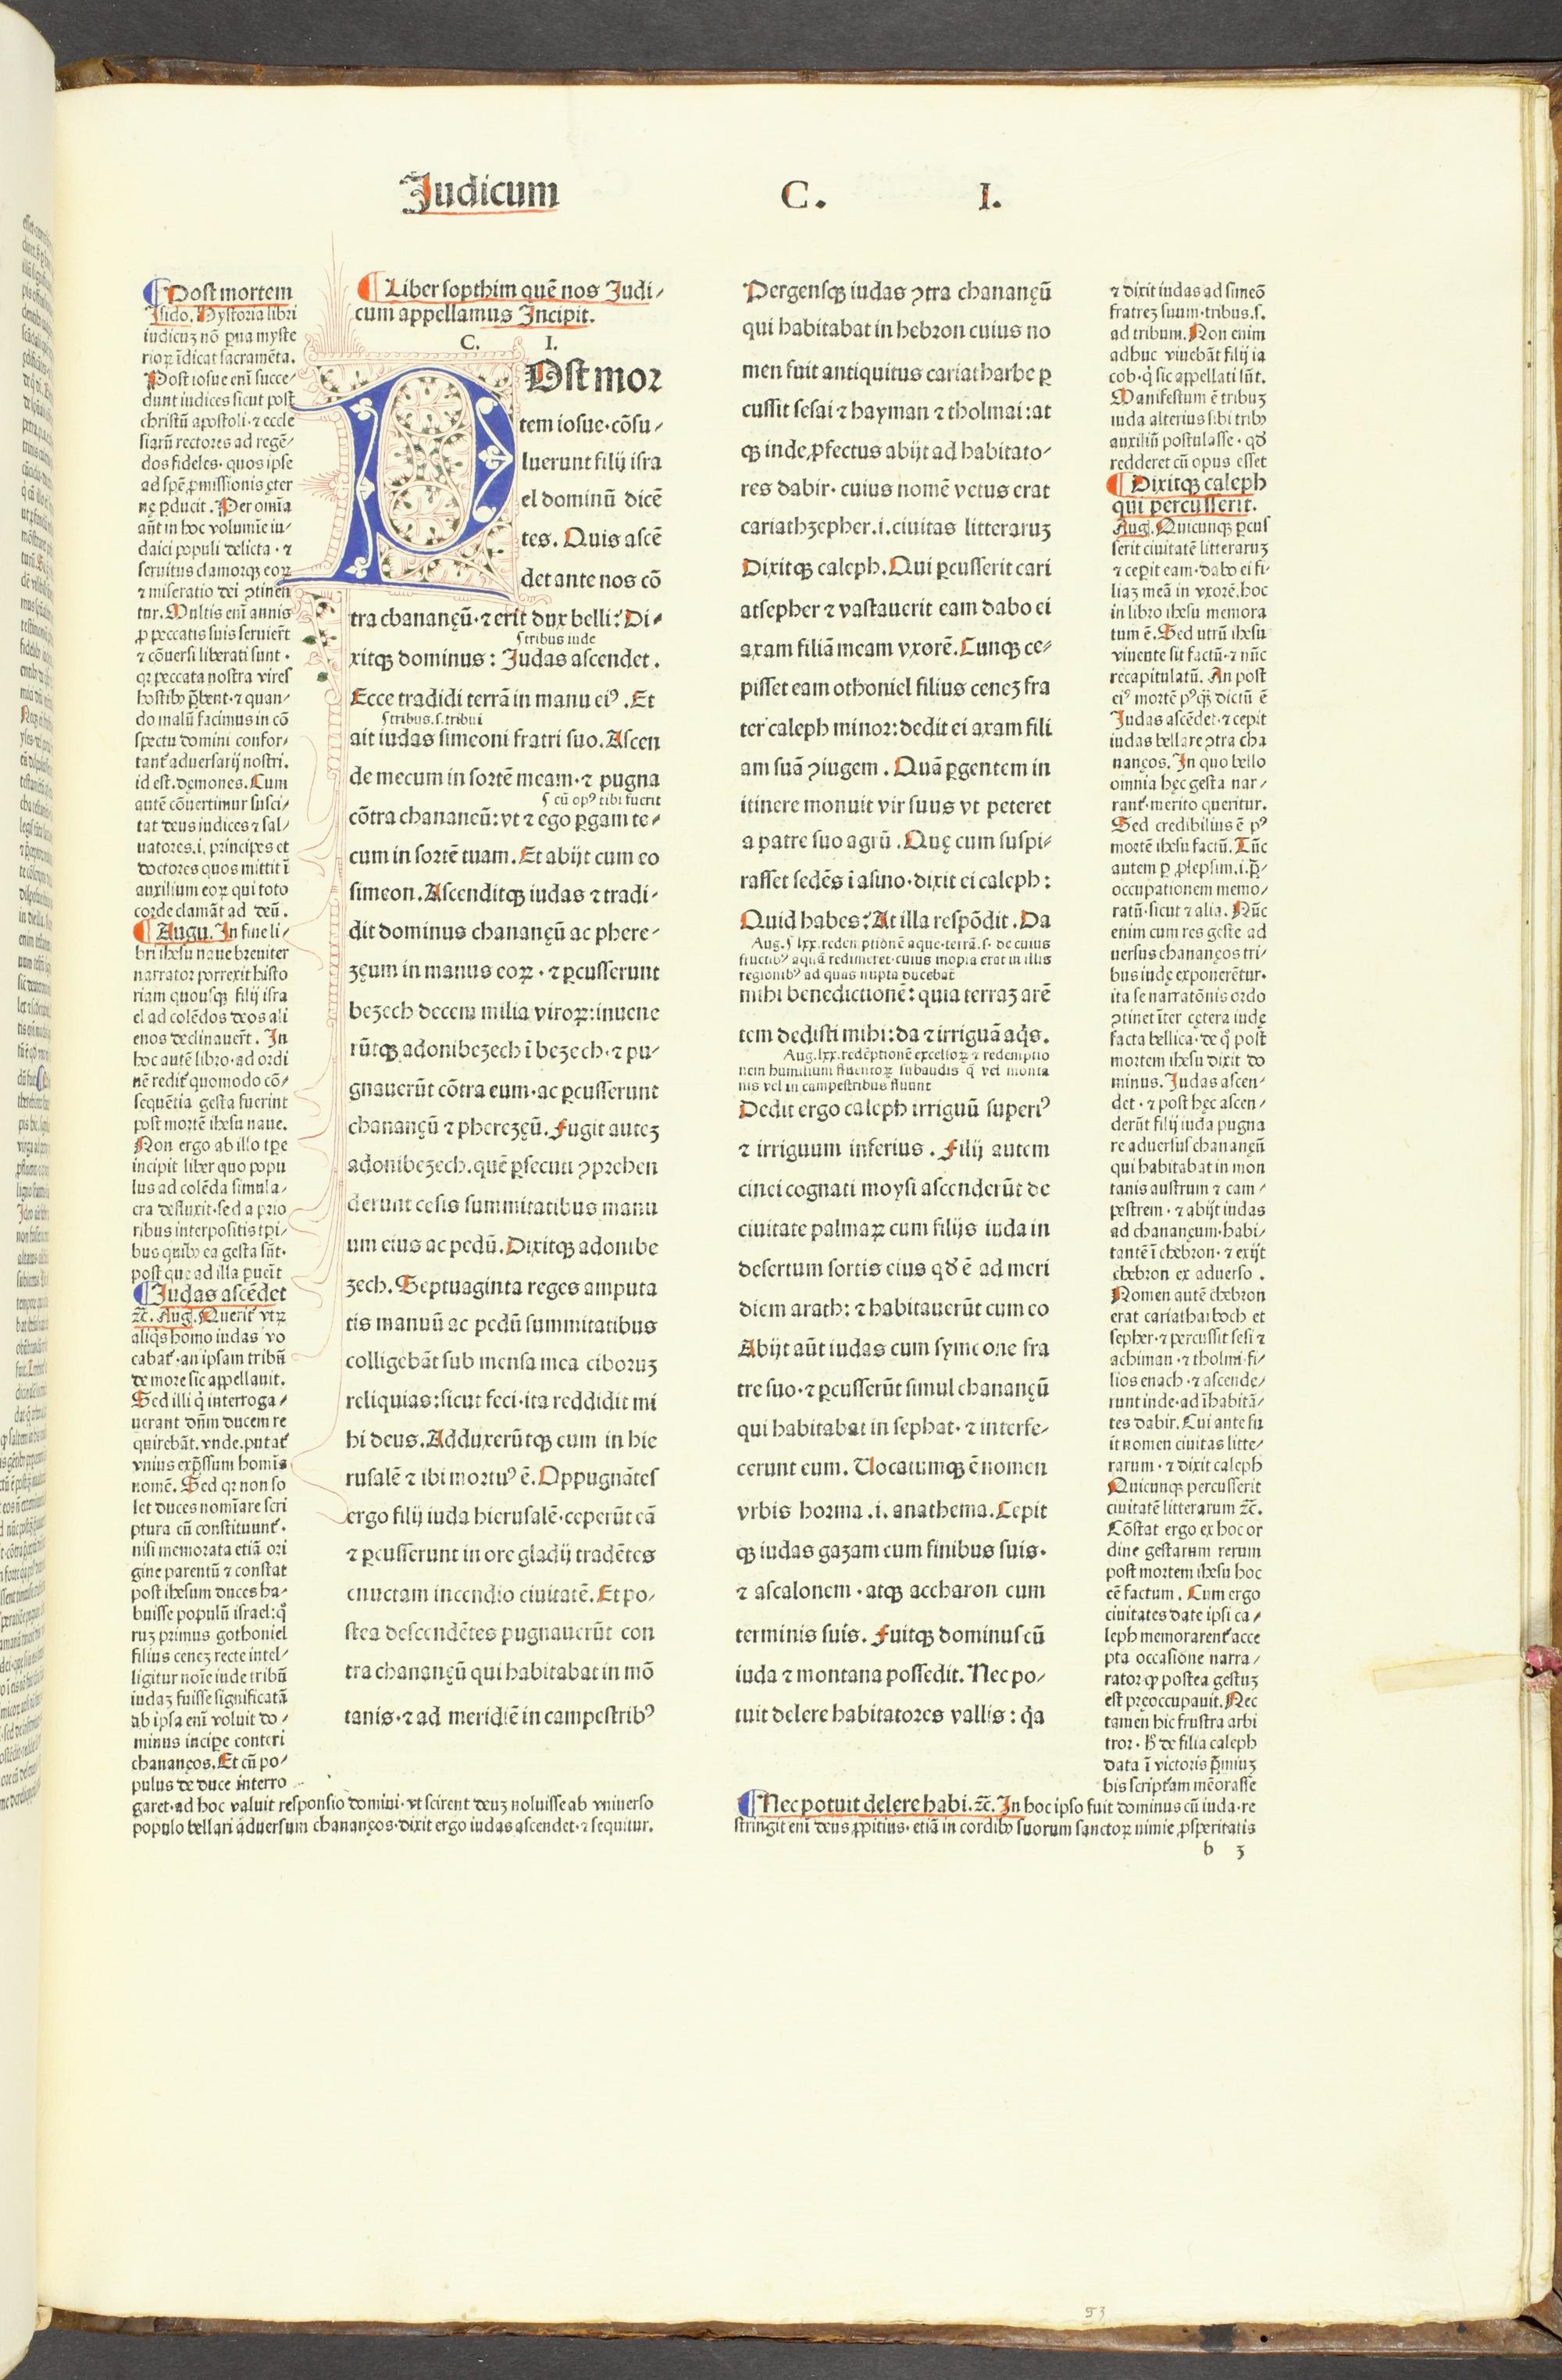 Judicum C. I.
¶Post mortem
Isido. Hystoria libri
iudicuꝫ nõ ꝑua myste
rioꝝ ĩdicat sacramẽta.
Post iosue eni᷒ succe⸗
dunt iudices sicut post
christũ apostoli· ⁊ eccle
siarũ rectores ad regẽ⸗
dos fideles· quos ipse
ad spẽ ꝓmissionis ęter
nę ꝑducit. Per omĩa
aũt in hoc volumĩe iu⸗
daici populi delicta· ⁊
seruitus clamorqꝫ eoꝝ
⁊ miseratio dei ꝯtinen
tur. Multis eni᷒ annis
ꝓ peccatis suis seruier̃t
⁊ cõuersi liberati sunt·
qꝛ peccata nostra vires
hostibꝰ p̃bent· ⁊ quan⸗
do malũ facimus in cõ
spectu domini confor⸗
tant᷒ aduersarij nostri.
id est. dęmones. Cum
autẽ cõuertimur susci⸗
tat deus iudices ⁊ sal⸗
uatores.i. principes et
doctores quos mittit ĩ
auxilium eoꝝ qui toto
corde clamãt ad deũ.
¶Augu. In fine li⸗
bri ihesu naue breuiter
narrator porrexit histo
riam quousqꝫ filij isra
el ad colẽdos deos ali
enos declinauer̃t. In
hoc autẽ libro· ad ordi
nẽ redit᷒ quomodo cõ⸗
sequẽtia gesta fuerint
post mortẽ ihesu naue.
Non ergo ab illo tp̃e
incipit liber quo popu
lus ad colẽda simula⸗
cra defluxit· sed a prio
ribus interpositis tp̃i⸗
bus quibꝰ ea gesta sũt·
post que ad illa ꝑuẽit
¶Judas ascẽdet
⁊c̃. Aug. Querit᷒ vtꝝ
aliqs homo iudas vo
cabat᷒· an ipsam tribũ
de more sic appellauit.
Sed illi q̃ interroga⸗
uerant dñm ducem re
quirebãt. vnde· putat᷒
vnius exp̃ssum homĩs
nomẽ. Sed qꝛ non so
let duces nomĩare scri
ptura cũ constituunt᷒·
nisi memorata etiã ori
gine parentũ ⁊ constat
post ihesum duces ha⸗
buisse populũ israel: q̊
ruꝫ primus gothoniel
filius cenez recte intel⸗
ligitur noĩe iude tribũ
iudaꝫ fuisse significatã
ab ipsa eni᷒ voluit do⸗
minus incipe conteri
chananęos. Et cũ po⸗
pulus de duce interro
garet· ad hoc valuit responsio domini· vt scirent deuꝫ noluisse ab vniuerso
populo bellari aduersum chananęos· dixit ergo iudas ascendet· ⁊ sequitur.
¶Liber sopthim quẽ nos Judi⸗
cum appellamus Incipit.
C. I.
POst mor
tem iosue· cõsu⸗
luerunt filij isra
el dominũ dicẽ
tes. Quis ascẽ
det ante nos cõ
tra chananęũ· ⁊ erit dux belli: Di⸗
ſtribus iude
xitqꝫ dominus: Judas ascendet.
Ecce tradidi terrã in manu eiꝰ. Et
ſtribus.s. tribui
ait iudas simeoni fratri suo. Ascen
de mecum in sortẽ meam· ⁊ pugna
ſ cũ opꝰ tibi fuerit
cõtra chananeũ: vt ⁊ ego ꝑgam te⸗
cum in sortẽ tuam. Et abijt cum eo
simeon. Ascenditqꝫ iudas ⁊ tradi⸗
dit dominus chananęũ ac phere⸗
zęum in manus eoꝝ· ⁊ ꝑcusserunt
bezech decem milia viroꝝ: inuene
rũtqꝫ adonibezech ĩ bezech· ⁊ pu⸗
gnauerũt cõtra eum· ac ꝑcusserunt
chananęũ ⁊ pherezęũ. Fugit auteꝫ
adonibezech. quẽ ꝑsecuti ꝯprehen
derunt cesis summitatibus manu
um eius ac pedũ. Dixitqꝫ adonibe
zech. Septuaginta reges amputa
tis manuũ ac pedũ summitatibus
colligebãt sub mensa mea ciboruꝫ
reliquias: sicut feci· ita reddidit mi
hi deus. Adduxerũtqꝫ eum in hie
rusalẽ ⁊ ibi mortuꝰ ẽ. Oppugnãtes
ergo filij iuda hierusalẽ· ceperũt eã
⁊ ꝑcusserunt in ore gladij tradẽtes
cunctam incendio ciuitatẽ. Et po⸗
stea descendẽtes pugnauerũt con
tra chananęũ qui habitabat in mõ
tanis· ⁊ ad meridiẽ in campestribꝰ
Pergensqꝫ iudas ꝯtra chananęũ
qui habitabat in hebron cuius no
men fuit antiquitus cariatharbe ꝑ
cussit sesai ⁊ hayman ⁊ tholmai: at
qꝫ inde ꝓfectus abijt ad habitato⸗
res dabir· cuius nomẽ vetus erat
cariathzepher.i. ciuitas litteraruꝫ
Dixitqꝫ caleph. Qui ꝑcusserit cari
atsepher ⁊ vastauerit eam dabo ei
axam filiã meam vxorẽ. Cunqꝫ ce⸗
pisset eam othoniel filius cenez fra
ter caleph minor: dedit ei axam fili
am suã ꝯiugem. Quã ꝑgentem in
itinere monuit vir suus vt peteret
a patre suo agrũ. Quę cum suspi⸗
rasset sedẽs ĩ asino· dixit ei caleph:
Quid habes: At illa respõdit. Da
Aug. ſ lxx. redemptionẽ aque· terrã.s. de cuius
fructibꝰ aquã redimeret· cuius inopia erat in illis
regionibꝰ ad quas nupta ducebat᷒
mihi benedictionẽ: quia terraꝫ arẽ
tem dedisti mihi: da ⁊ irriguã aq̃s.
Aug. lxx. redẽptionẽ excelsoꝝ ⁊ redemptio
nem humilium fluentoꝝ subaudis q̃ vel monta
nis vel in campestribus fluunt
Dedit ergo caleph irriguũ superiꝰ
⁊ irriguum inferius. Filij autem
cinei cognati moysi ascenderũt de
ciuitate palmaꝝ cum filijs iuda in
desertum sortis eius qð ẽ ad meri
diem arath: ⁊ habitauerũt cum eo
Abijt aũt iudas cum symeone fra
tre suo· ⁊ ꝑcusserũt simul chananęũ
qui habitabat in sephat· ⁊ interfe⸗
cerunt eum. Uocatumqꝫ ẽ nomen
vrbis horma.i. anathema. Cepit
qꝫ iudas gazam cum finibus suis·
⁊ ascalonem· atqꝫ accharon cum
terminis suis. Fuitqꝫ dominus cũ
iuda ⁊ montana possedit. Nec po⸗
tuit delere habitatores vallis: q̃a
⁊ dixit iudas ad simeõ
fratrez suum· tribus.s.
ad tribum. Non enim
adhuc viuebãt filij ia
cob· q̃ sic appellati sũt.
Manifestum ẽ tribuꝫ
iuda alterius sibi tribꝰ
auxiliũ postulasse· qð
redderet cũ opus esset
¶Dixitqꝫ caleph
qui percusserit.
Aug. Quicunqꝫ ꝑcus
serit ciuitatẽ litteraruꝫ
⁊ ceperit eam· dabo ei fi⸗
liaꝫ meã in vxorẽ. hoc
in libro ihesu memora
tum ẽ. Sed utrũ ihesu
viuente sit factũ· ⁊ nũc
recapitulatũ. An post
eiꝰ mortẽ pꝰqꝫ dictũ ẽ
Judas ascẽdet· ⁊ cepit
iudas bellare ꝯtra cha
nanęos. In quo bello
omnia hęc gesta nar⸗
rant᷒· merito queritur.
Sed credibilius ẽ pꝰ
mortẽ ihesu factũ. Tũc
autem ꝑ ꝓlepsim.i. p̃⸗
occupationem memo⸗
ratũ· sicut ⁊ alia. Nũc
enim cum res geste ad
uersus chananęos tri⸗
bus iudę exponerẽtur·
ita se narratõnis ordo
ꝯtinet ĩter cętera iudę
facta bellica· de q̊ post
mortem ihesu dixit do
minus. Judas ascen⸗
det· ⁊ post hęc ascen⸗
derũt filij iuda pugna
re aduersus chananęũ
qui habitabat in mon
tanis austrum ⁊ cam⸗
pestrem· ⁊ abijt iudas
ad chananęum· habi⸗
tantẽ ĩ chebron· ⁊ exijt
chebron ex aduerso.
Nomen autẽ chebron
erat cariatharboch et
sepher· ⁊ percussit sesi ⁊
achiman· ⁊ tholmi· fi⸗
lios enach· ⁊ ascende⸗
runt inde· ad ĩhabitã⸗
tes dabir. Cui ante fu
it nomen ciuitas litte⸗
rarum· ⁊ dixit caleph
Quicunqꝫ percusserit
ciuitatẽ litterarum ⁊c̃.
Cõstat ergo ex hoc or
dine gestarum rerum
post mortem ihesu hoc
eẽ factum. Cum ergo
ciuitates date ipsi ca⸗
leph memorarent᷒ acce
pta occasione narra⸗
rator qꝙ postea gestuꝫ
est pręoccupauit. Nec
tamen hic frustra arbi
tror· hꝰ de filia caleph
data ĩ victoris p̃miuꝫ
bis scriptꝰam mẽorasse
¶Nec potuit delere habi. ⁊c̃. In hoc ipso fuit dominus cũ iuda· re
stringit eni᷒ deus ꝓpitius· etiã in cordibꝰ suorum sanctoꝝ nimie ꝓsperitatis
b 3
53